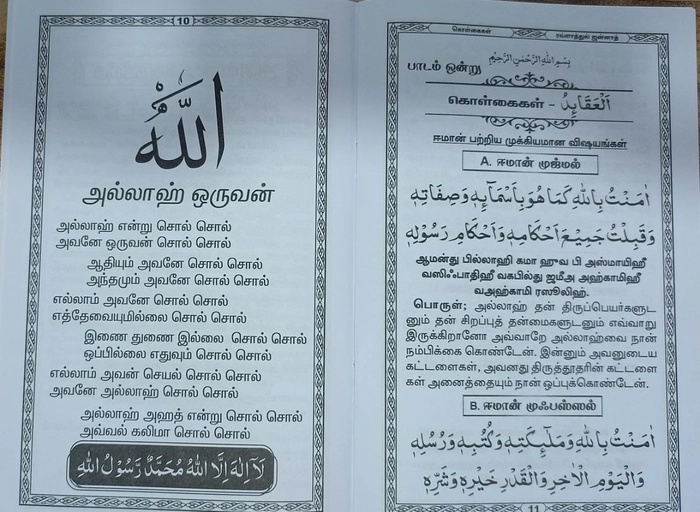 10
الله
அல்லாஹ் ஒருவன்
அல்லாஹ் என்று சொல் சொல்
அவனே ஒருவன் சொல் சொல்
ஆதியும் அவனே சொல் சொல்
அந்தமும் அவனே சொல் சொல்
எல்லாம் அவனே சொல் சொல்
எத்தேவையுமில்லை சொல் சொல்
இணை துணை இல்லை சொல் சொல்
ஒப்பில்லை எதுவும் சொல் சொல்
எல்லாம் அவன் செயல் சொல் சொல்
அவனே அல்லாஹ் சொல் சொல்
அல்லாஹ் அஹத் என்று சொல் சொல்
அவ்வல் கலிமா சொல் சொல்
لَآ اِلٰهَ اِلَّا اللهُ مُحَمَّدٌ رَّسُوْلُ اللهِ
கொள்கைகள் ரவ்ளாத்துல் ஜன்னாத்
பாடம் ஒன்று بِسْمِ اللهِ الرَّحْمٰنِ الرَّحِيْمِ
கொள்கைகள் - اَلْعَقَايِدُ
ஈமான் பற்றிய முக்கியமான விஷயங்கள்
A. ஈமான் முஜ்மல்
اٰمَنْتُ بِاللهِ كَمَا هُوَ بِاَسْمَآئِهٖ وَصِفَاتِهٖ
وَقَبِلْتُ جَمِيْعَ اَحْكَامِهٖ وَاَحْكَامِ رَسُوْلِهٖ
ஆமன்து பில்லாஹி கமா ஹுவ பி அஸ்மாயிஹீ
வஸிஃபாதிஹீ வகபில்து ஜமீஅ அஹ்காமிஹீ
வஅஹ்காமி ரஸூலிஹ்.
பொருள்; அல்லாஹ் தன் திருப்பெயர்களுட
னும் தன் சிறப்புத் தன்மைகளுடனும் எவ்வாறு
இருக்கிறானோ அவ்வாறே அல்லாஹ்வை நான்
நம்பிக்கை கொண்டேன். இன்னும் அவனுடைய
கட்டளைகள், அவனது திருத்தூதரின் கட்டளை
கள் அனைத்தையும் நான் ஒப்புக்கொண்டேன்.
B. ஈமான் முஃபஸ்ஸல்
اٰمَنْتُ بِاللهِ وَمَلٰٓئِكَتِهٖ وَكُتُبِهٖ وَرُسُلِهٖ
وَالْيَوْمِ الْاٰخِرِ وَالْقَدْرِ خَيْرِهٖ وَشَرِّهٖ
11